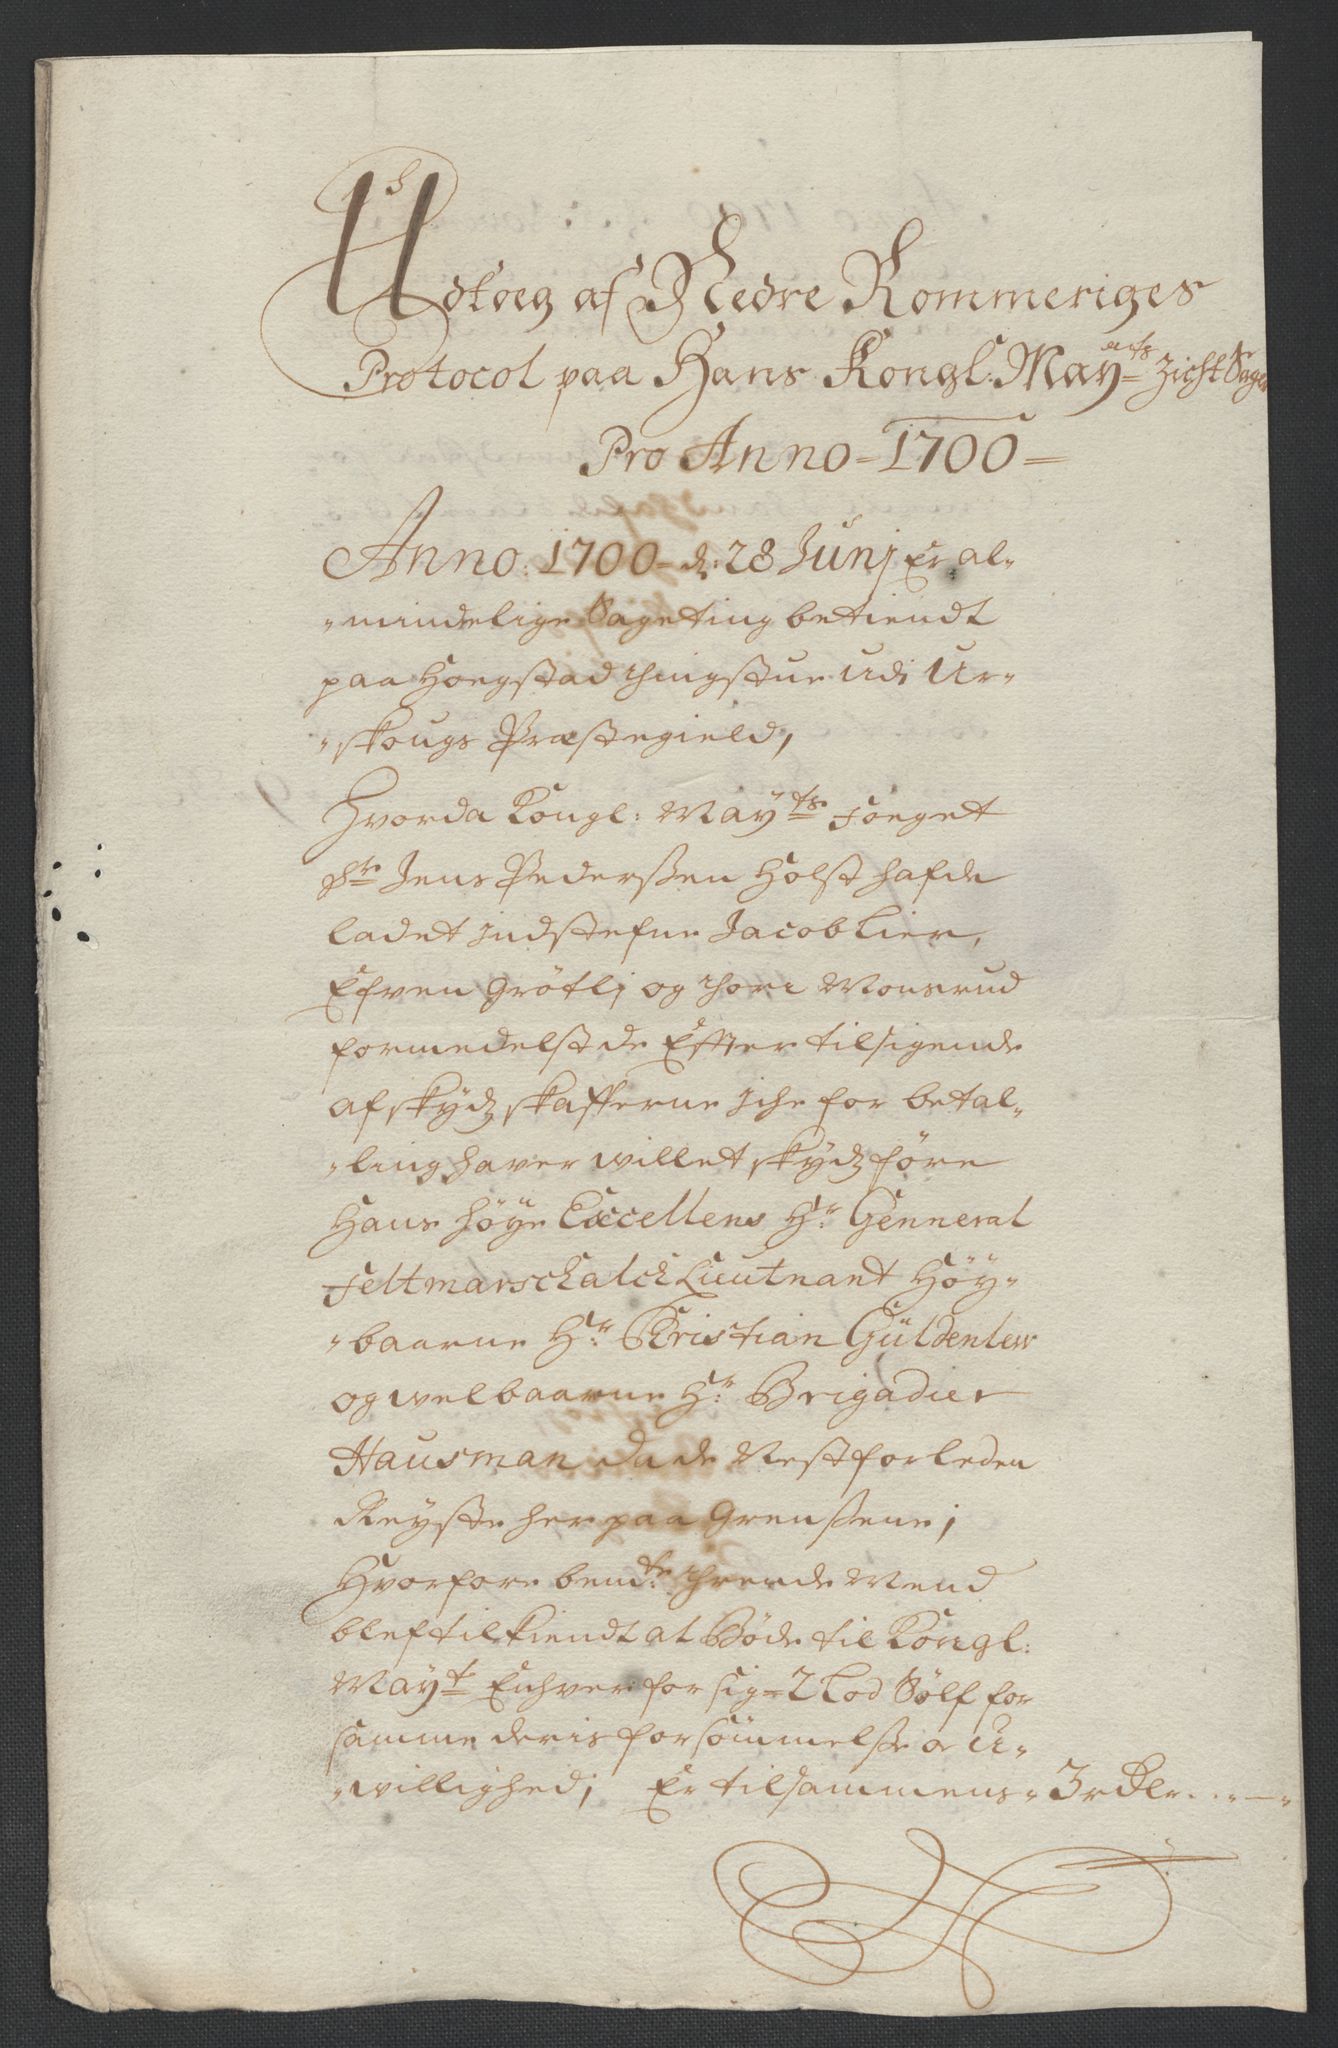 Udtoeg af Nedre Rommeriges
Protocol paa Hans Kongl: May:ts Zicht Sager
Pro Anno-1700-
Anno: 1700- d: 28 Junj Er al-
-mindelige Sageting betiendt
paa Hoegstad thingstue udi Ur-
-skougs Præstegield,
Hvorda Kongl: May:ts Foeget
Sr Jens Pederssen Holst hafde
ladet indstefne Jacob Lier,
Efven Grötlj og Thore Monsrud
formedelst de Effter tilsigende
af skydz skafferne iche for betal-
-ling haver willet skydz føre
Hans höye Excellens Hr: Genneral
Feltmarschalck Lieutnant Höy-
-baarne Hr: Kristian Güldenlew
og welbaarne Hr: Brigadier
Hausman da de Nest forleden
Reyste her paa Grenssene;
Hvorfore bemte: thrende Mend
blef tilkiendt at Böde til Kongl:
Mayt Enhver for sig- 2 Lod Sölf for
samme deris forsömmelsse o U-
-willighed; Er tilsammens- 3 rdlr